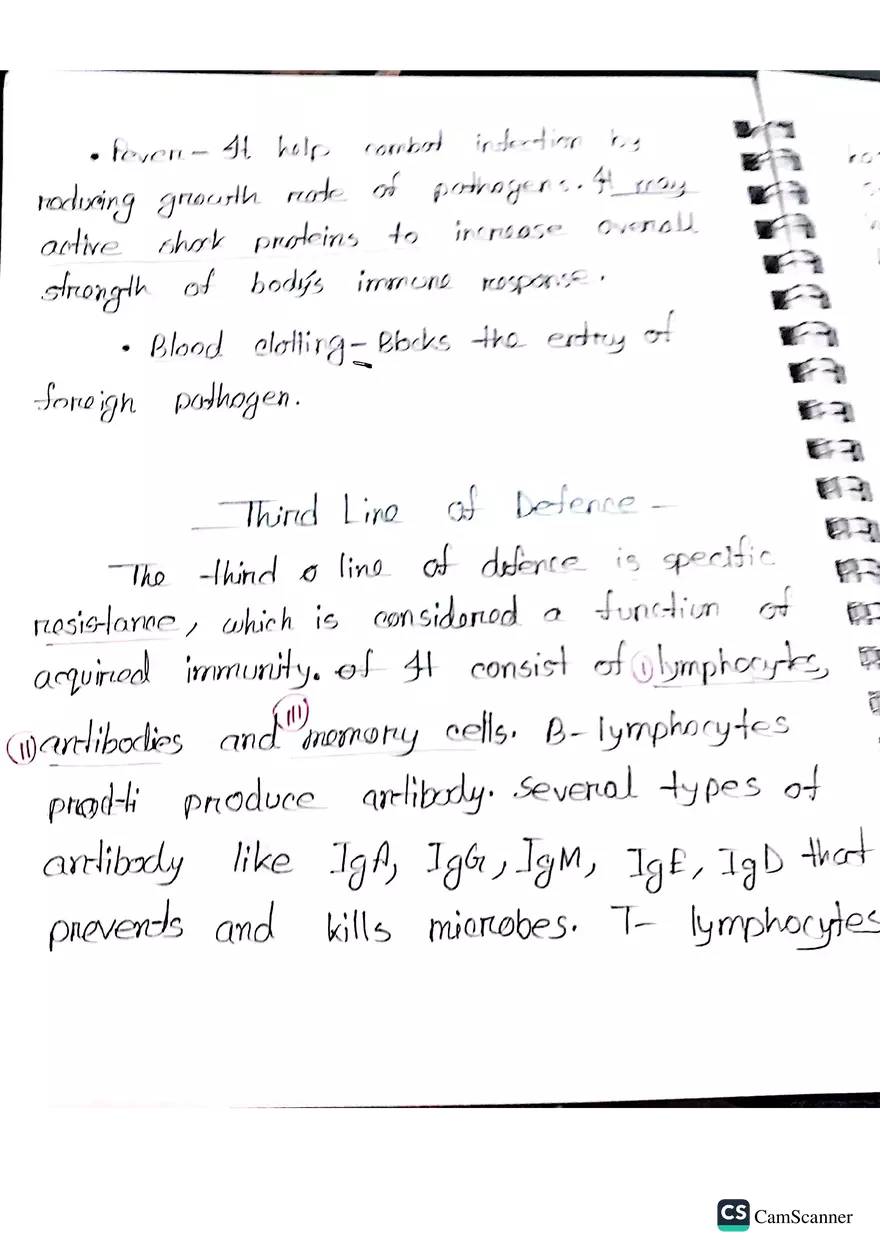 • Fever - It help combat infection by
reducing growth rate of pathogens. It may
active shock proteins to increase overall
strength of body's immune response.
• Blood clotting - Blocks the entry of
foreign pathogen.
Third Line of Defence -
The third line of defence is specific
resistance, which is considered a function of
acquired immunity. of It consist of (i) lymphocytes,
(ii) antibodies and (iii) memory cells. B-lymphocytes
produce antibody. Several types of
antibody like IgA, IgG, IgM, IgE, IgD that
prevents and kills microbes. T- lymphocytes
CS CamScanner